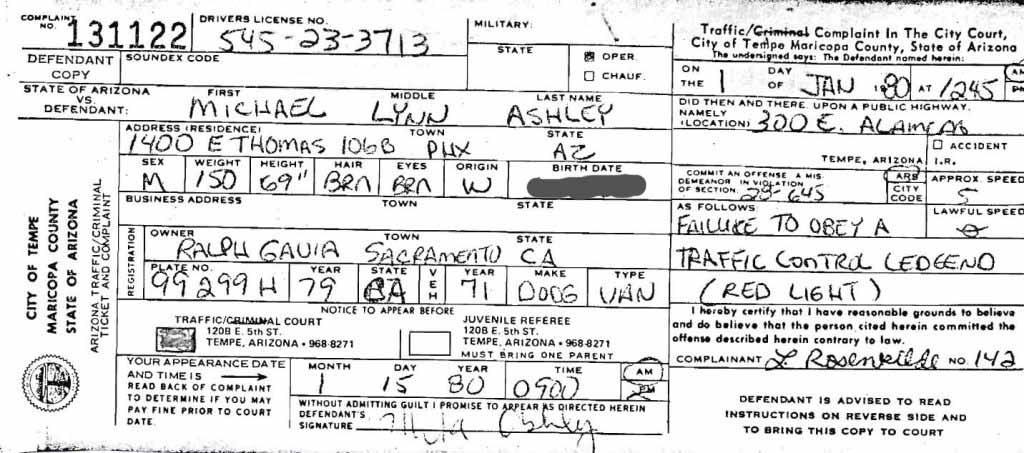 COMPLAINT NO. 131122
DRIVERS LICENSE NO. 545-23-3713
SOUNDEX CODE
MILITARY:
STATE
OPER.
CHAUF.
DEFENDANT COPY
STATE OF ARIZONA VS. DEFENDANT:
FIRST MIDDLE LAST NAME
MICHAEL LYNN ASHLEY
ADDRESS (RESIDENCE) TOWN STATE
1400 E THOMAS 106B PHX AZ
SEX WEIGHT HEIGHT HAIR EYES ORIGIN BIRTH DATE
M 150 69" BRN BRN W
BUSINESS ADDRESS TOWN STATE
REGISTRATION
OWNER TOWN STATE
RALPH GAVIA SACRAMENTO CA
PLATE NO. YEAR STATE VEH YEAR MAKE TYPE
99299H 79 CA 71 DODG VAN
NOTICE TO APPEAR BEFORE
TRAFFIC/CRIMINAL COURT
120B E. 5th ST.
TEMPE, ARIZONA • 968-8271
JUVENILE REFEREE
120B E. 5th ST.
TEMPE, ARIZONA • 968-8271
MUST BRING ONE PARENT
YOUR APPEARANCE DATE
AND TIME IS
READ BACK OF COMPLAINT
TO DETERMINE IF YOU MAY
PAY FINE PRIOR TO COURT
DATE.
MONTH DAY YEAR TIME AM
1 15 80 0900 PM
WITHOUT ADMITTING GUILT I PROMISE TO APPEAR AS DIRECTED HEREIN
DEFENDANT'S
SIGNATURE
CITY OF TEMPE
MARICOPA COUNTY
STATE OF ARIZONA
ARIZONA TRAFFIC/CRIMINAL
TICKET AND COMPLAINT
Traffic/Criminal Complaint In The City Court,
City of Tempe Maricopa County, State of Arizona
The undersigned says: The Defendant named herein:
ON THE 1 DAY OF JAN 1980 AT 1245 AM PM
DID THEN AND THERE, UPON A PUBLIC HIGHWAY,
NAMELY (LOCATION) 300 E.
ACCIDENT
TEMPE, ARIZONA I.R.
COMMIT AN OFFENSE A MIS-
DEMEANOR IN VIOLATION
OF SECTION: 28-645
ARS
CITY CODE
APPROX. SPEED
5
AS FOLLOWS:
LAWFUL SPEED
FAILURE TO OBEY A
TRAFFIC CONTROL LEDGEND
(RED LIGHT)
I hereby certify that I have reasonable grounds to believe
and do believe that the person cited herein committed the
offense described herein contrary to law.
COMPLAINANT L Rosenkilde NO. 142
DEFENDANT IS ADVISED TO READ
INSTRUCTIONS ON REVERSE SIDE AND
TO BRING THIS COPY TO COURT